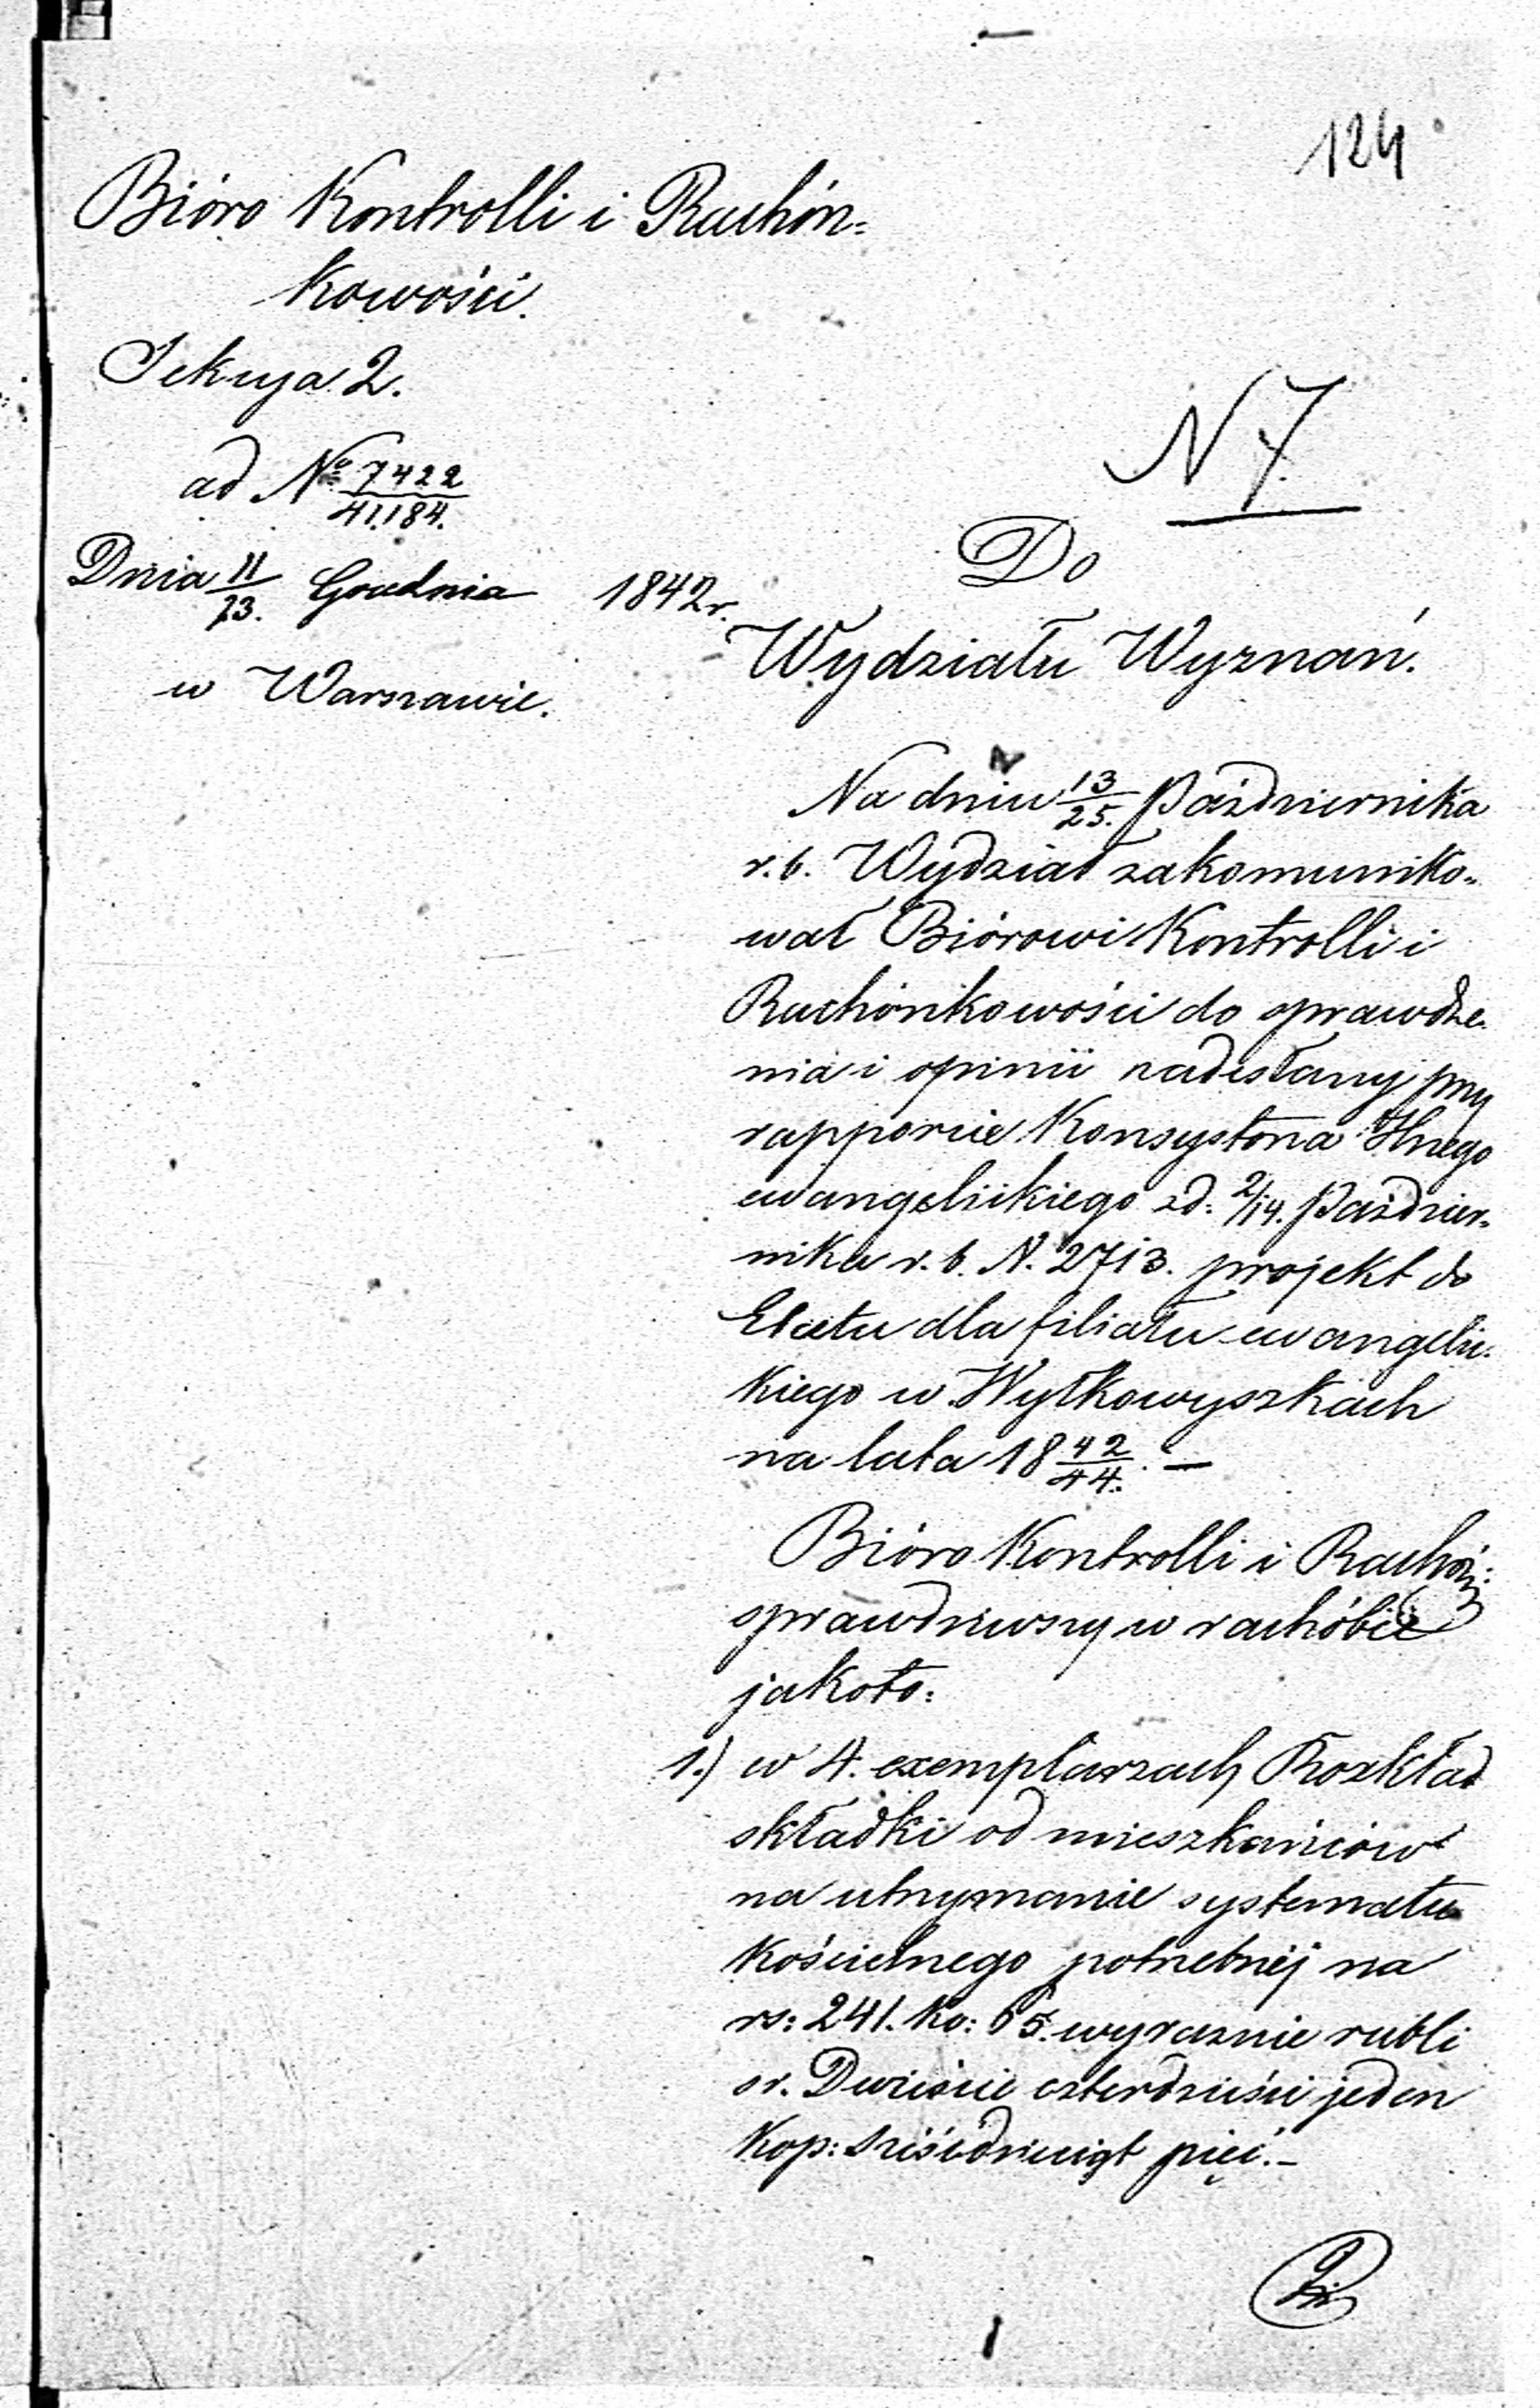 124
Bióro Kontrolli i Rachón=
kowości.
Sekcya 2.
ad Nº 7422/41.184.
N 7.
Dnia 11/23. Grudnia 1842 r.
w Warszawie.
Do
Wydziału Wyznań.
Na dniu 13/25. Października
r. b. Wydział zakomuniko-
wał Biórowi Kontrolli i
Rachónkowości do sprawdze-
nia i opinii nadesłany przy
rapporcie Konsystorza Jlnego
ewangelickiego z d: 2/14. Paździer-
nika r. b. N. 2713. projekt do
Etatu dla filiału ewangelic-
kiego w Wyłkowyszkach
na lata 18 42/44. —
Bióro Kontrolli i Rachón:
sprawdziwszy w rachóbie
jakoto:
1.) w 4. exemplarzach Rozkład
składki od mieszkańców
na utrzymanie systematu
Kościelnego potrzebnéj na
rs: 241. ko: 65. wyraznie rubli
sr. Dwieście czterdzieści jeden
Kop: sześćdziesiąt pięć. –